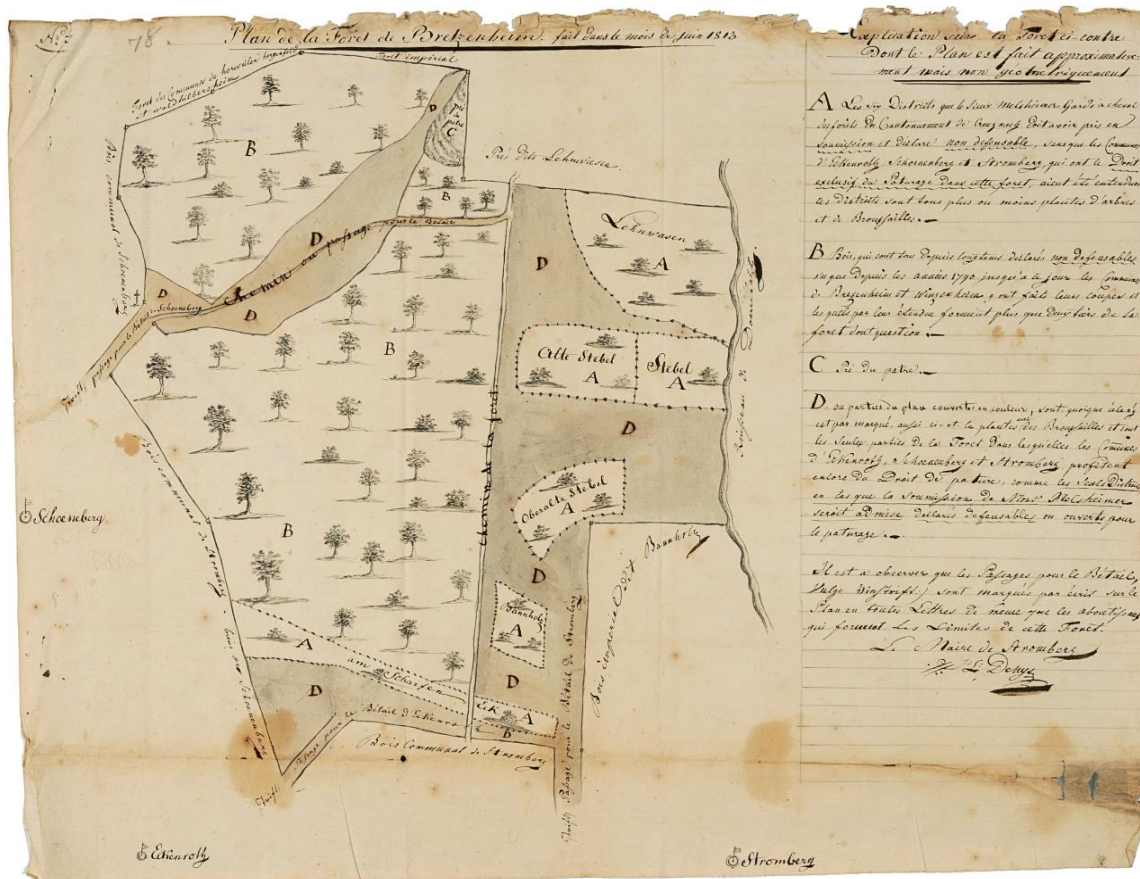 78.
Plan de la Forêt de Bretzenheim, fait dans le mois de juin 1813
Forêt impérial
Bois communal de Schoenenberg
B
D
C
Prés dits Lehnwasen
B
Lehnwasen
A
D
D
chemin ou passage pour le Betail
D
D
passage pour le Betail de Schoeneberg
B
Alte Stebel
A
Stebel
A
D
Chemin de la foret
Ruisseau de
Oberalte Stebel
A
Schoeneberg
B
Bois communal de Stromberg
D
Bannholz
A
Bois imperial dit Bannholz
A
am Scharfen
Ek A
D
D
D
Passage pour le Bétail d'Ekenro
Bois Communal de Stromberg
Passage pour le Bétail de Stromberg
Eckenroth
Stromberg
Explication sur la Foret ci contre
Dont le Plan est fait approximative-
ment mais non géometriquement
A Les six Districts que le sieur Melsheimer Garde à cheval
des forêts du Cantonnement de Creuznag doit avoir pris en
soumission et déclaré non defensable, sans que les Communes
d'Eckenroth, Schoenenberg et Stromberg, qui ont le Droit
exclusif du Paturage dans cette foret, aient été entendues
les districts sont tous plus ou moins plantés d'arbres
et de Broussailles.
B Bois, qui sont tous depuis longtems declarés non defensables
vu que depuis les années 1790 jusqu'à ce jour les Communes
de Brezenheim et Winzenheim y ont faits leurs coupes et
les quels par leur étendue forment plus que deux tiers de la
foret dont question.
C Pré du patre.
D ou parties du plan couverts en couleur, sont, quoique cela n'y
est pas marqué, aussi ci et la plantés des Broussailles et sont
les seules parties de la Foret dans lesquelles les Communes
d'Ekenroth, Schoenenberg et Stromberg profitent
encore du Droit de pature, comme les seuls Districts
en cas que la soumission de Monsr Melsheimer
seroit admise declarés defensables ou ouverts pour
le paturage.
Il est a observer que les Passages pour le Bétail
sont marqués par écris sur le
Plan en toutes Lettres de même que les aboutissans
qui forment les Limites de cette Foret.
Le Maire de Stromberg